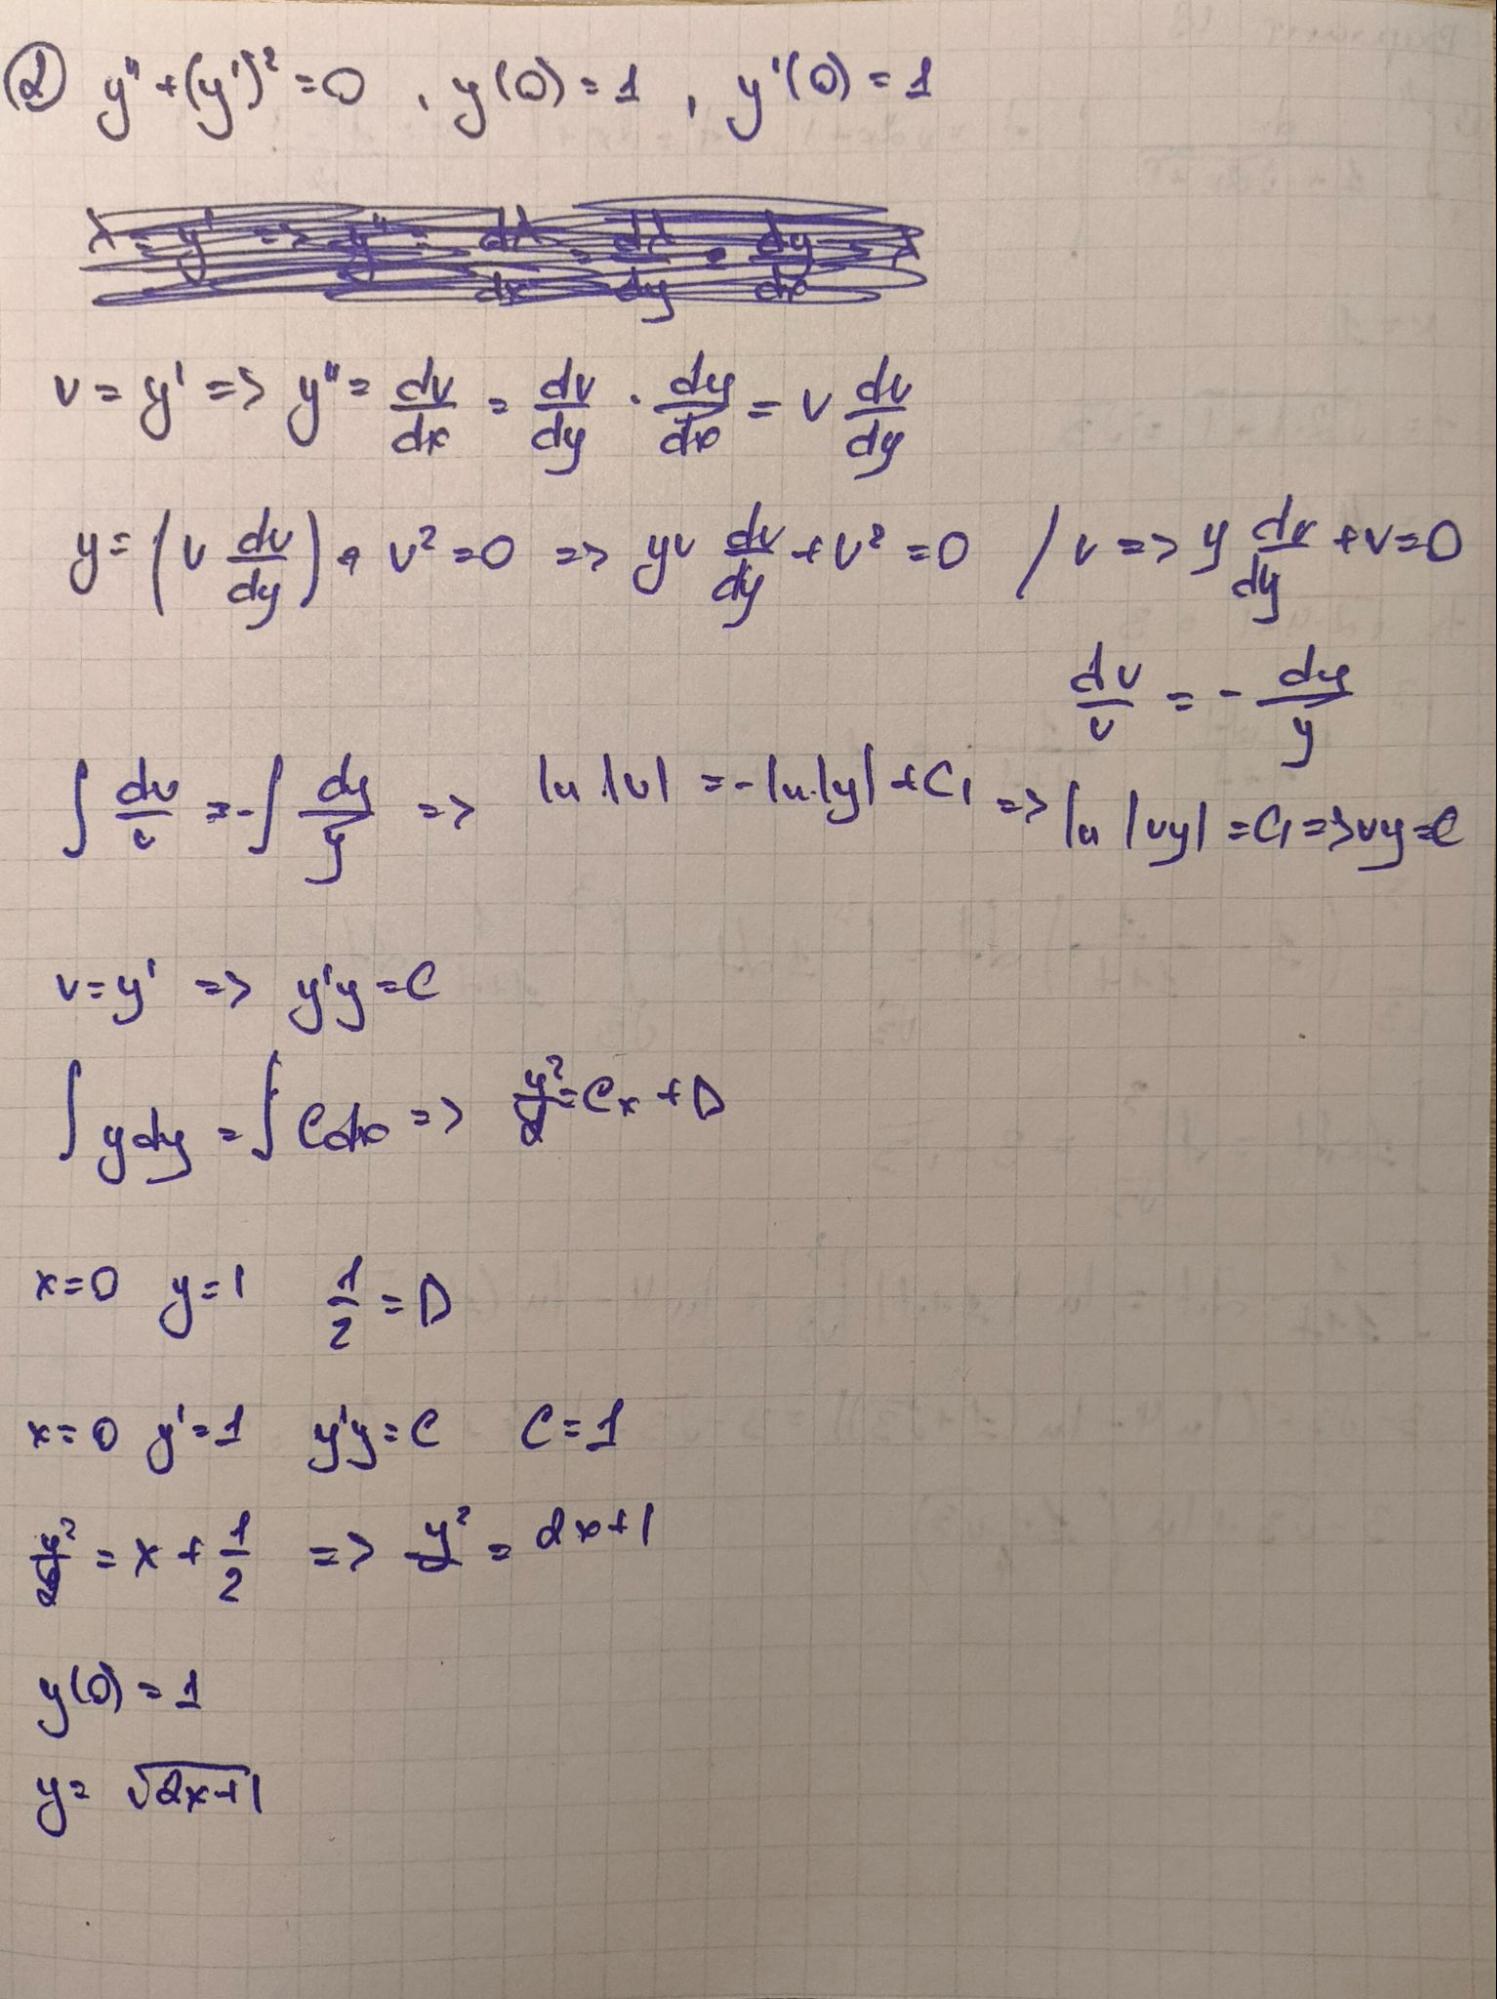 ② y" + (y')² = 0 , y(0) = 1 , y'(0) = 1
v = y' => y" = dv/dx = dv/dy · dy/dx = v dv/dy
y = (v dv/dy) + v² = 0 => yv dv/dy + v² = 0 / v => y dv/dy + v = 0
dv/v = - dy/y
∫ dv/v = -∫ dy/y => ln |v| = -ln |y| + C₁ => ln |vy| = C₁ => vy = C
v = y' => y'y = C
∫ y dy = ∫ C dx => y²/2 = Cx + D
x = 0 y = 1 1/2 = D
x = 0 y' = 1 y'y = C C = 1
y²/2 = x + 1/2 => y² = 2x+1
y(0) = 1
y = √2x+1